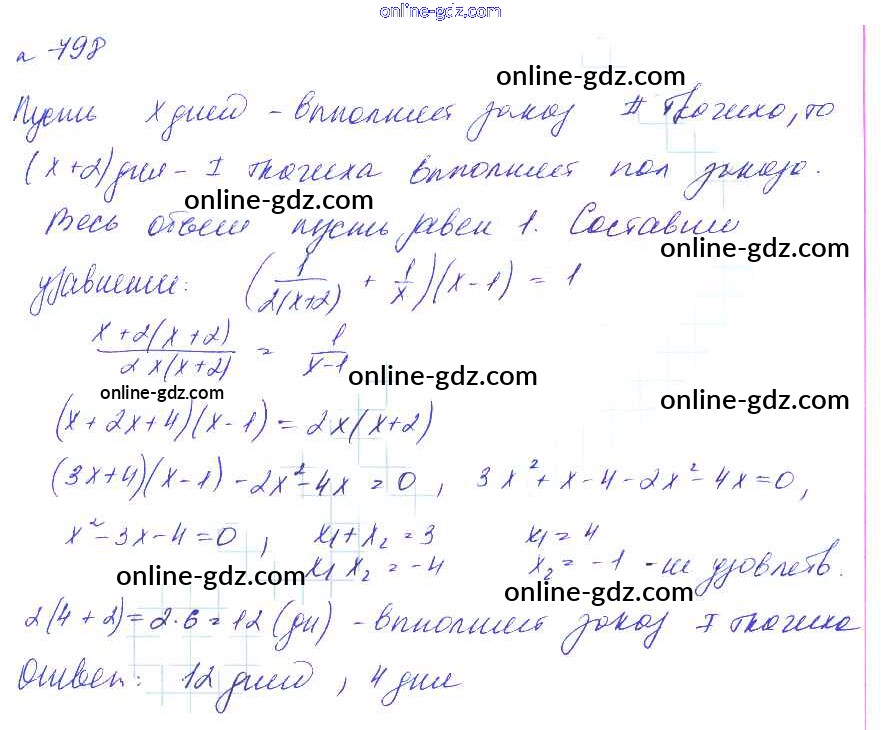 online-gdz.com
№ 798
online-gdz.com
Пусть x дней - выполняет заказ II ткачиха, то
(x+2) дня - I ткачиха выполняет пол заказа.
online-gdz.com
Весь объем пусть равен 1. Составим
online-gdz.com
уравнение: (1/2(x+2) + 1/x)(x-1) = 1
x+2(x+2)/2x(x+2) = 1/x-1
online-gdz.com
online-gdz.com
online-gdz.com
(x+2x+4)(x-1) = 2x(x+2)
(3x+4)(x-1) - 2x²-4x = 0, 3x²+x-4-2x²-4x=0,
x²-3x-4=0, x₁+x₂=3 x₁=4
x₁x₂=-4 x₂=-1 - не удовлетв.
online-gdz.com
online-gdz.com
2(4+2)=2·6=12 (дн) - выполняет заказ I ткачиха
Ответ: 12 дней, 4 дня